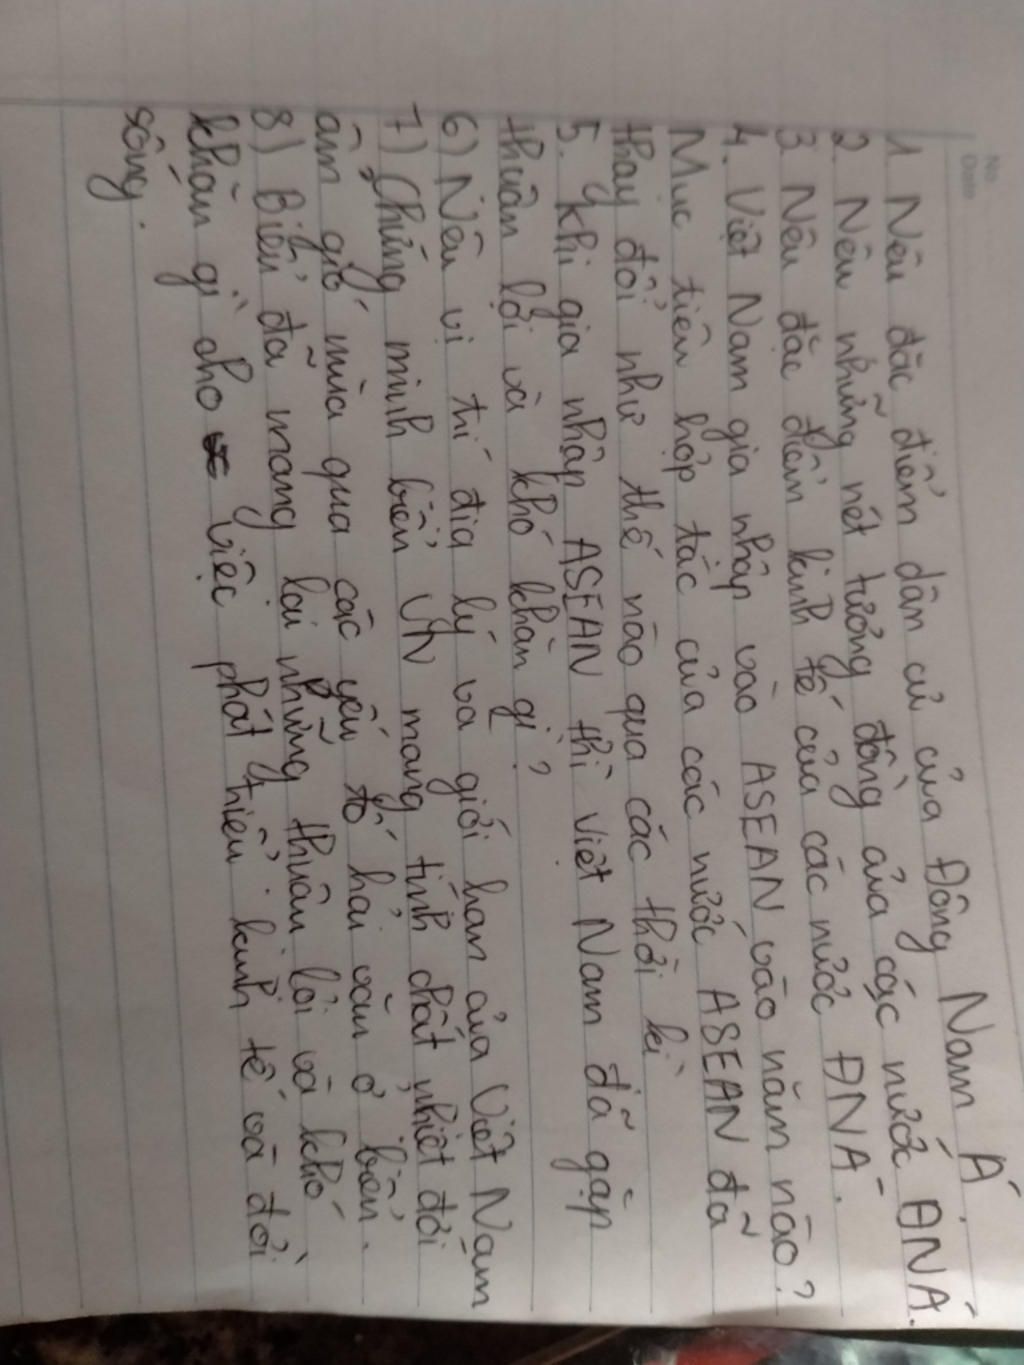 No.
Date
1 Nêu đặc điểm dân cư của Đông Nam Á.
2. Nêu những nét tương đồng của các nước ĐNÁ.
3 Nêu đặc điểm kinh tế của các nước ĐNÁ.
4. Việt Nam gia nhập vào ASEAN vào năm nào?
Mục tiêu hợp tác của các nước ASEAN đã
thay đổi như thế nào qua các thời kì
5. Khi gia nhập ASEAN thì Việt Nam đã gặp
thuận lợi và khó khăn gì?
6) Nêu vị trí địa lý và giới hạn của Việt Nam
7) Chứng minh biển VN mang tính chất nhiệt đới
ẩm gió mùa qua các yếu tố hải văn ở biển.
8) Biển đã mang lại những thuận lợi và khó
khăn gì cho việc phát triển kinh tế và đời
sống.